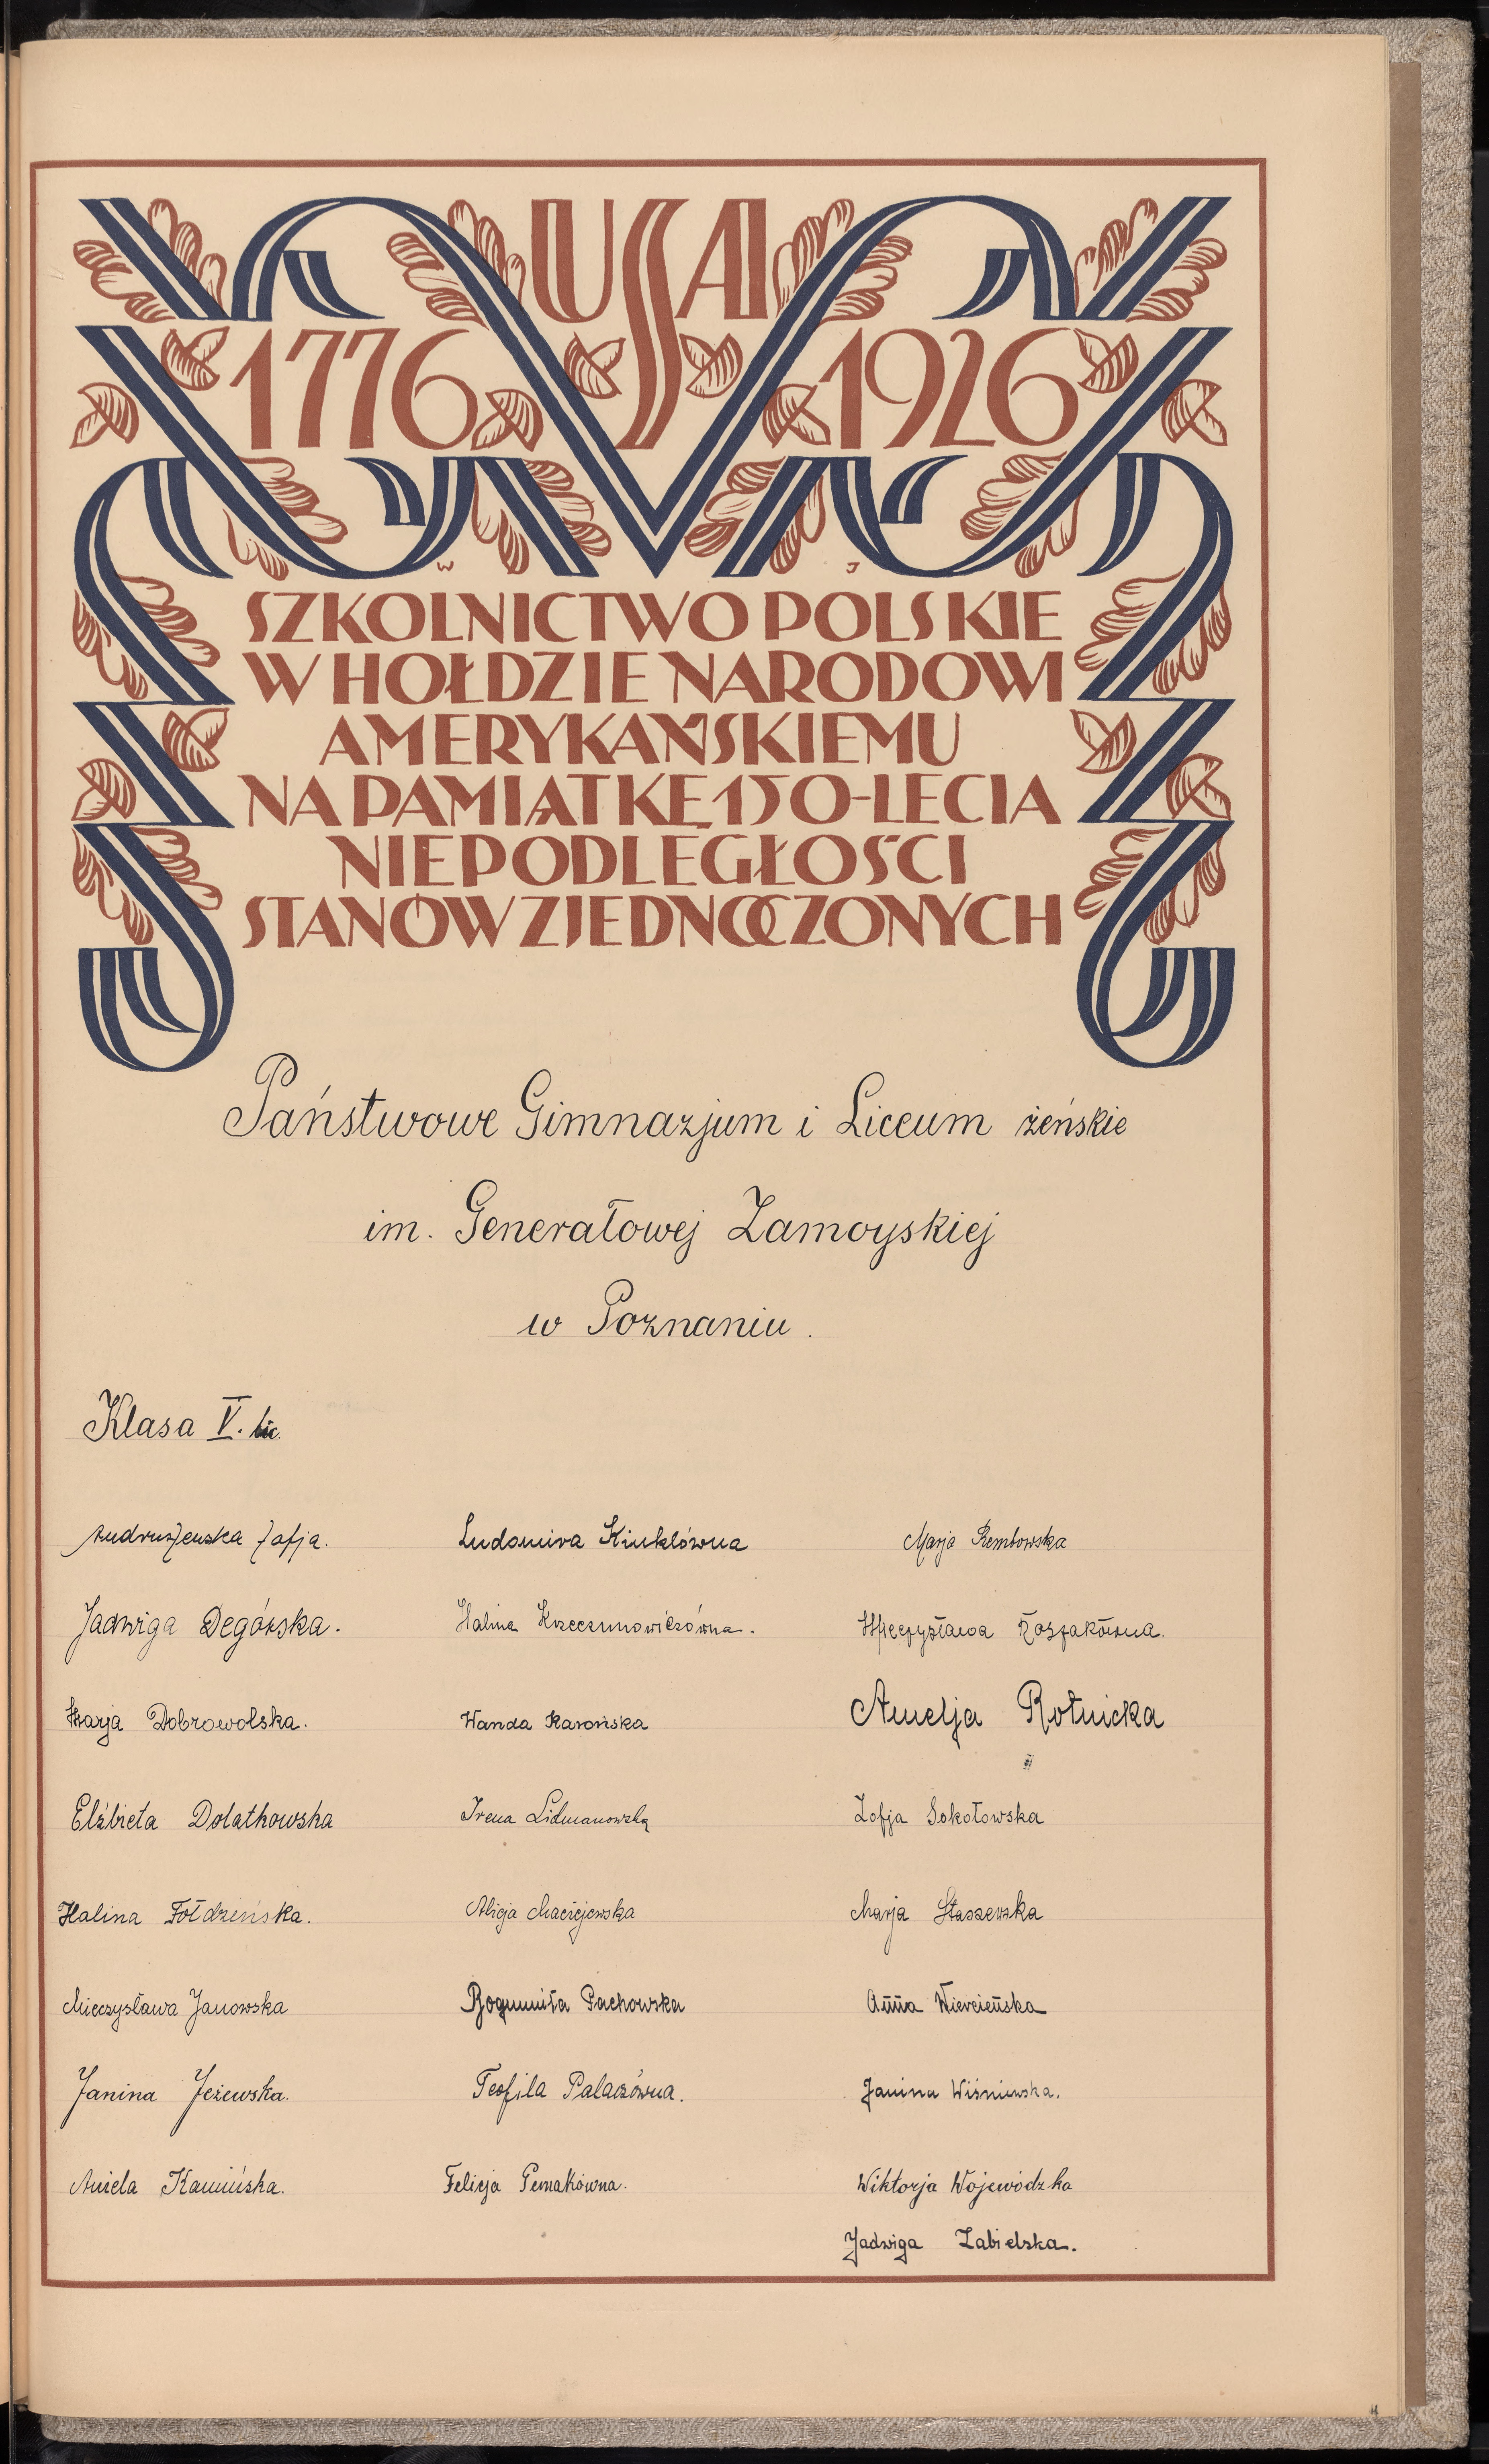 USA
1776 1926
W J
SZKOLNICTWO POLSKIE
W HOŁDZIE NARODOWI
AMERYKAŃSKIEMU
NA PAMIĄTKĘ 150-LECIA
NIEPODLEGŁOŚCI
STANÓW ZJEDNOCZONYCH
Państwowe Gimnazjum i Liceum żeńskie
im. Generałowej Zamoyskiej
w Poznaniu.
Klasa V. lic.
Zofja.
Jadwiga Degórska.
Marja Dobrowolska.
Elżbieta Dolatkowska
Halina Fołdzińska.
Mieczysława Janowska
Janina Jeżewska.
Aniela Kamińska.
Ludomira Kinklówna
Halina Krzeczunowiczówna.
Wanda
Irena Lidmanowska
Alicja Maciejewska
Bogumiła Pachowska
Teofila Palaczówna.
Felicja
Marja Rembowska
Mieczysława Roszakówna.
Amelja Rotnicka
Zofja Sokołowska
Marja Staszewska
Anna Wiercieńska
Janina Wiśniewska.
Wiktorja Wojewódzka
Jadwiga Zabielska.